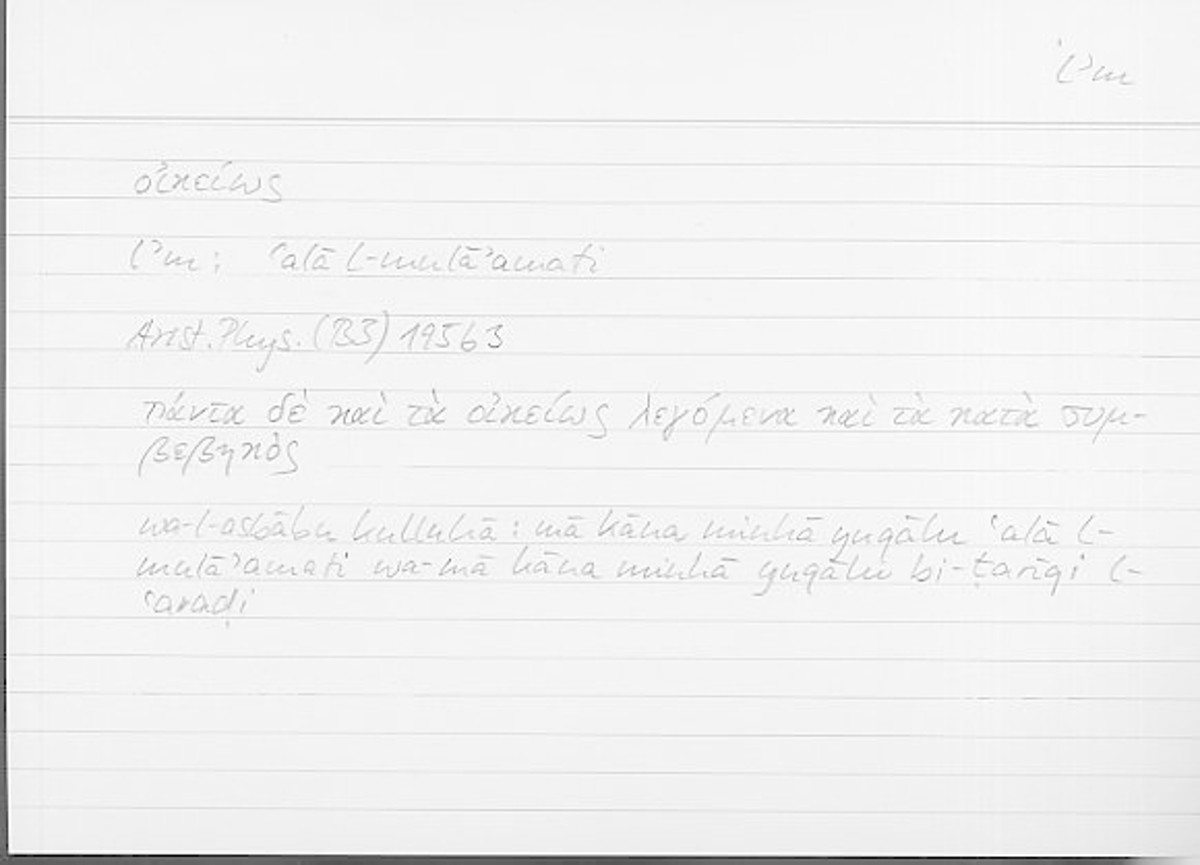 lʾm
οἰκείως
lʾm: ʿalā l-mulāʾamati
Arist. Phys. (B3) 195b3
πάντα δὲ καὶ τὰ οἰκείως λεγόμενα καὶ τὰ κατὰ συμ-
βεβηκὸς
wa-l-asbābu kulluhā: mā kāna minhā yuqālu ʿalā l-
mulāʾamati wa-mā kāna minhā yuqālu bi-ṭarīqi l-
ʿaraḍi